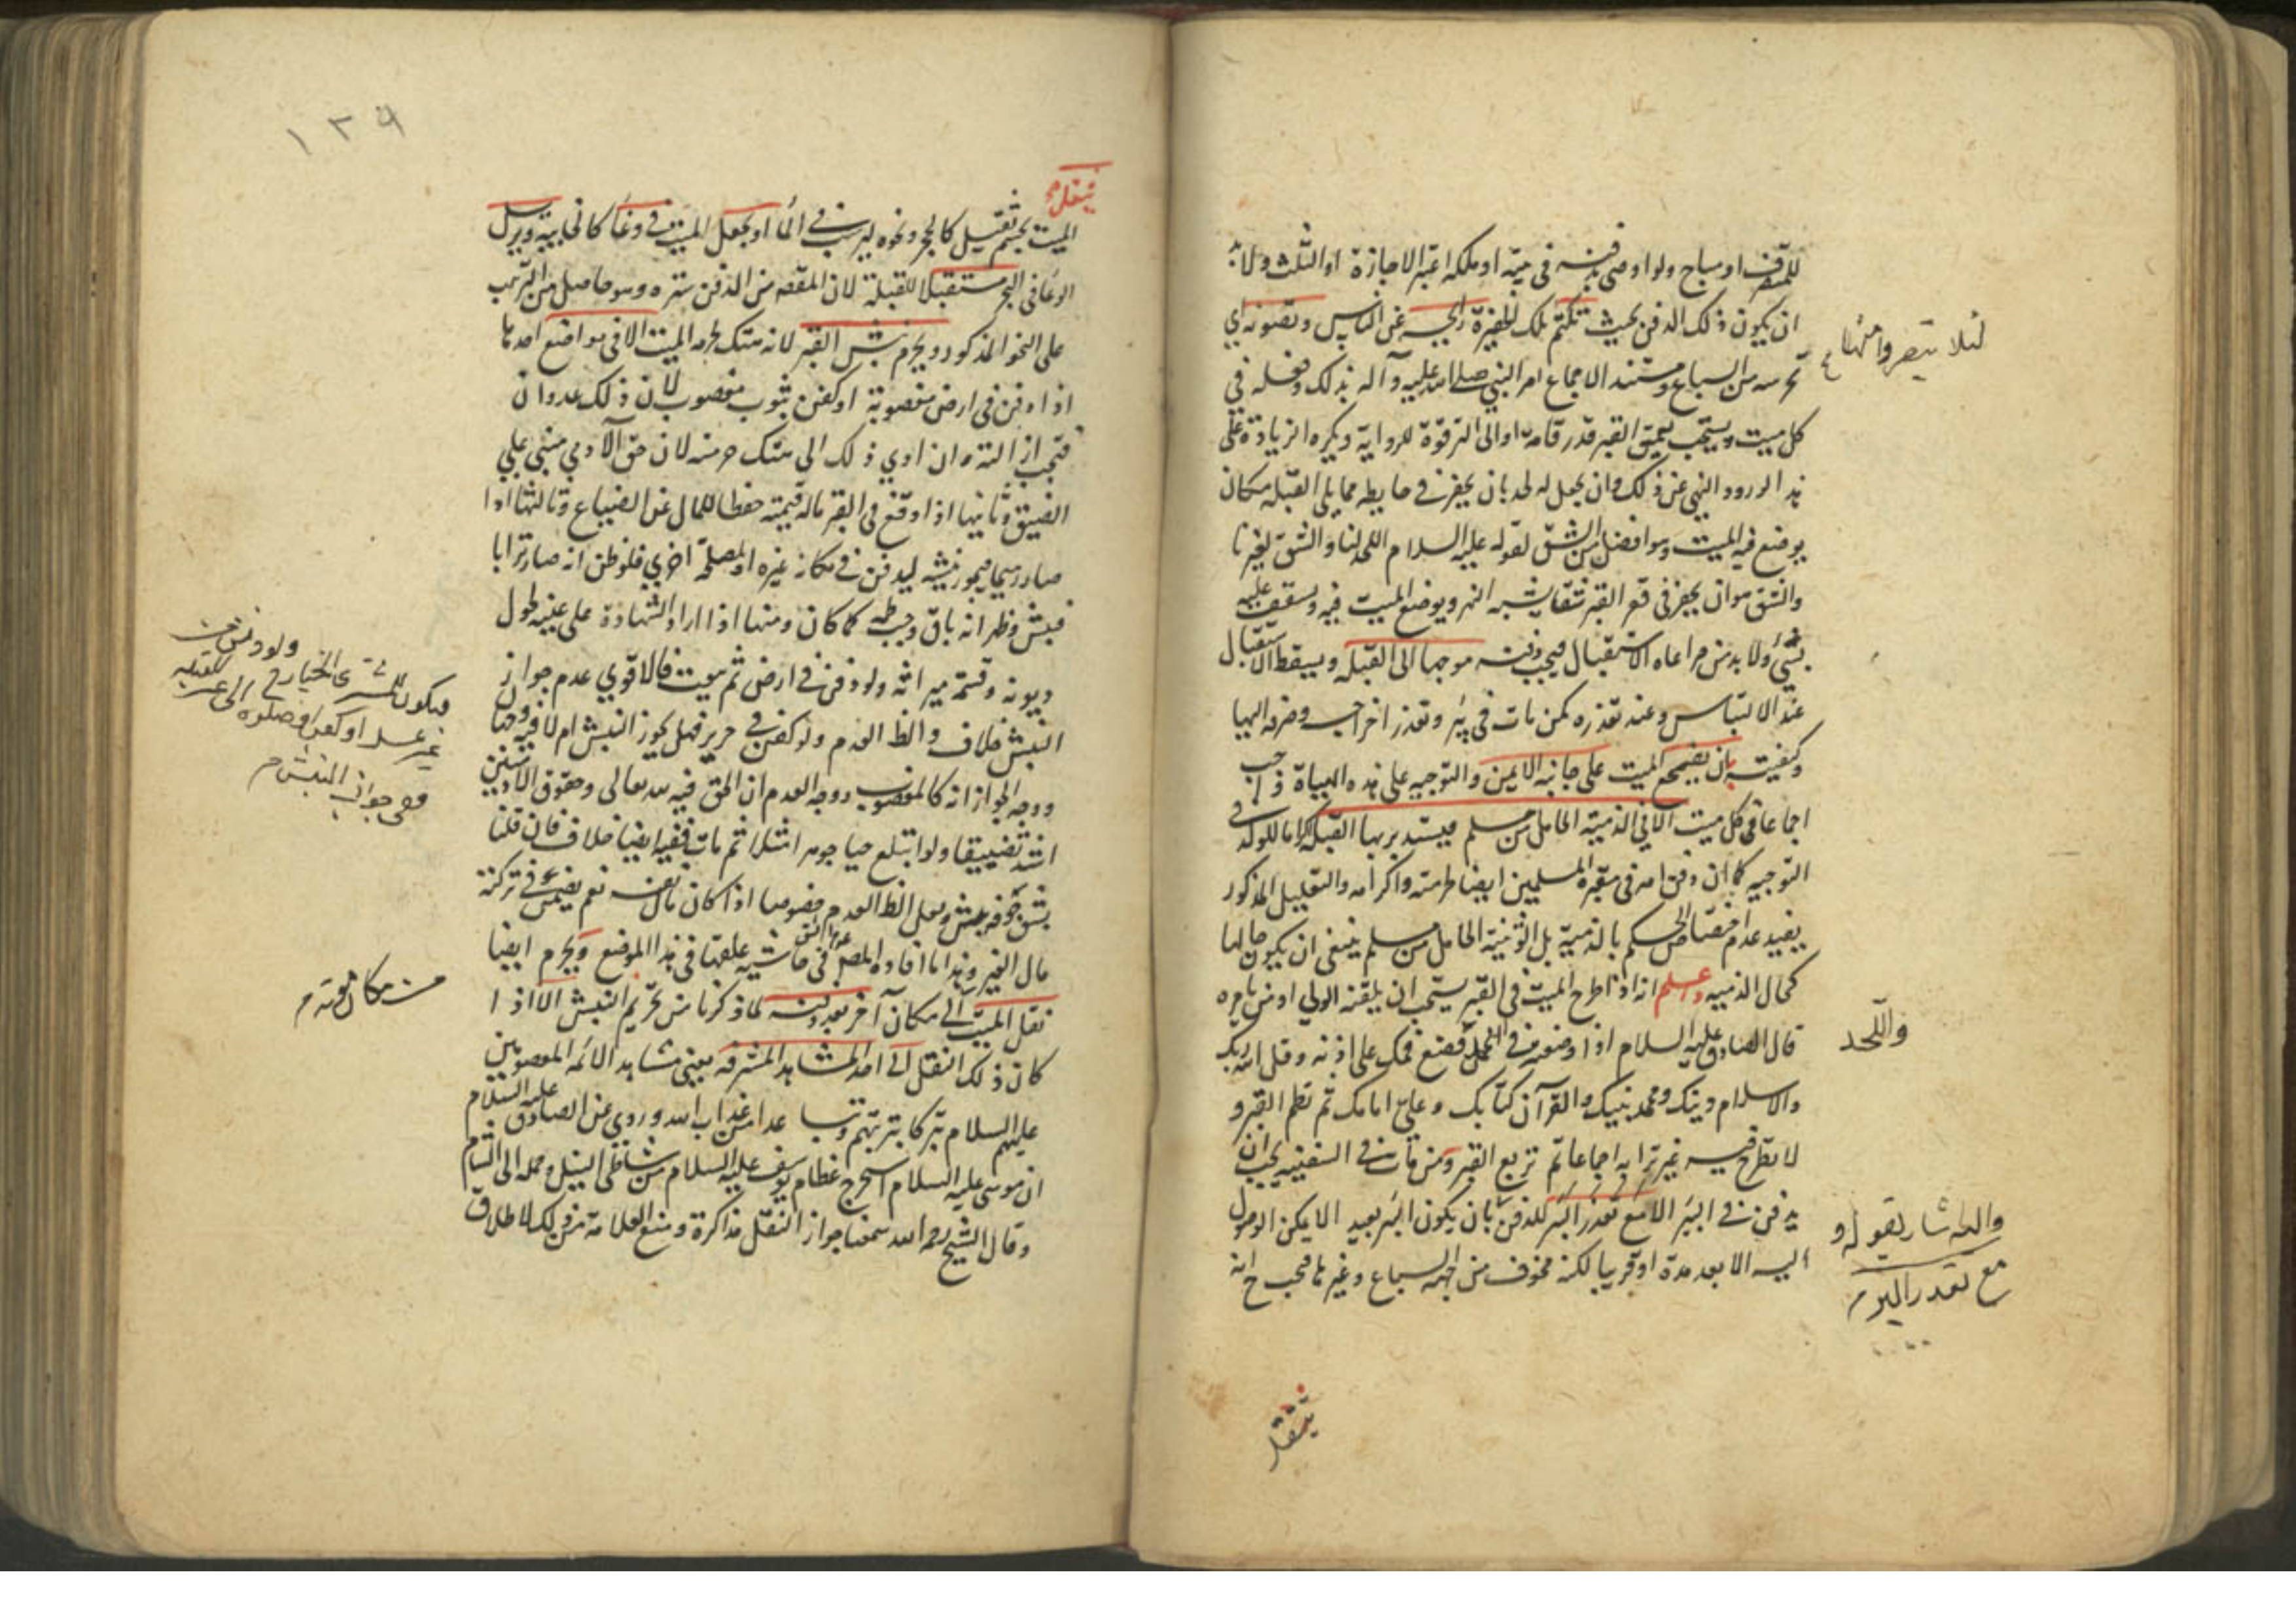 للمتصرف او مباح ولو اوصى بدفنه في بيته او ملكه اعتبر الاجازة او الثلث ولا بد
ان يكون ذلك الدفن بحيث تكتم تلك الحفيرة رايحته عن الناس وتصونه اي
تحرسه من السباع ومستند الاجماع امر النبي صلى الله عليه وآله بذلك وفعله في
كل ميت ويستحب تعميق القبر قدر قامة او الى الترقوة للرواية ويكره الزيادة على
هذا لورود النهي عن ذلك وان يجعل له لحد بان يحفر في حايطه مما يلي القبلة مكان
يوضع فيه الميت وهو افضل من الشق لقوله عليه السلام اللحد لنا والشق لغيرنا
والشق هو ان يحفر في قعر القبر شقا يشبه النهر ويوضع الميت فيه ويسقف عليه
بشيء ولا بد من مراعاة الاستقبال فيجب دفنه موجها الى القبلة ويسقط الاستقبال
عند الالتباس وعند تعذره كمن مات في بئر وتعذر اخراجه وصرفه اليها
وكيفيته بان يضجع الميت على جانبه الايمن والتوجيه على هذه الهيأة واجب
اجماعا في كل ميت الا في الذمية الحامل من مسلم فيستدبر بها القبلة اكراما للولد في
التوجيه كما ان دفن امه في مقبرة المسلمين ايضا لحرمته واكرامه والتعليل المذكور
يفيد عدم اختصاص الحكم بالذمية بل الوثنية الحامل من مسلم ينبغي ان يكون حالها
كحال الذمية واعلم انه اذا طرح الميت في القبر يستحب ان يلقنه الولي او من يامره
قال الصادق عليه السلام اذا وضعته في اللحد فضع فمك على اذنه وقل الله ربك
والاسلام دينك ومحمد نبيك والقرآن كتابك وعلي امامك ثم تطم القبر و
لا تطرح فيه غير ترابه اجماعا ثم تربع القبر ومن مات في السفينة يجب ان
يدفن في البر الا مع تعذر البر للدفن بان يكون البر بعيد الا يمكن الوصول
اليه الا بعد مدة او قريبا لكنه مخوف من جهة السباع وغيرها فيجب ح انه
يثقل
واللحد
مع تعذر البر م
١٣٩
يثقل
الميت بجسم ثقيل كالحجر ونحوه ليرسب في الماء او يجعل الميت في وعاء كالخابية ويرسل
الوعاء في البحر مستقبلا للقبلة لان المقصد من الدفن ستره وهو حاصل من الترسب
على النحو المذكور ويحرم نبش القبر لانه هتك لحرمة الميت الا في مواضع احدها
اذا دفن في ارض مغصوبة او كفن بثوب مغصوب لان ذلك عدوان
فتجب ازالته وان ادي ذلك الى هتك حرمته لان حق الآدمي مبني على
الضيق وثانيها اذا وقع في القبر ماله قيمة حفظا للمال عن الضياع وثالثها اذا
صار رميما فيجوز نبشه ليدفن في مكانه غيره او لمصلحة اخري فلو ظن انه صار ترابا
فنبش وظهر انه باق وجب طمه كما كان ومنها اذا اراد الشهادة على عينه لحلول
ديونه وقسمة ميراثه ولو دفن في ارض ثم بيعت فالاقوي عدم جواز
النبش خلاف والظ العدم ولو كفن في حرير فهل يجوز النبش ام لا فيه وجها
ووجه الجواز انه كالمغصوب ووجه العدم ان الحق فيه لله تعالى وحقوق الآدميين
اشد تضييقا ولو ابتلع حيا جوهرا مثلا ثم مات ففيه ايضا خلاف فان قلنا
بشق جوفه نبش ولعل الظ العدم خصوصا اذا كان مال نفسه نعم يضمن في تركته
مال الغير وهذا ما افاده المصنف في حاشية علقها في هذا الموضع ويحرم ايضا
نقل الميت الى مكان آخر بعد دفنه لما ذكرنا من تحريم النبش الا اذا
كان ذلك النقل الى احد المشاهد المشرفة يعني مشاهد الائمه المعصومين
عليهم السلام تبركا بتربتهم وتباعدا من عذاب الله وروي عن الصادق عليه السلام
ان موسى عليه السلام استخرج عظام يوسف عليه السلام من شاطئ النيل وحمله الى الشام
وقال الشيخ رحمه الله سمعنا جواز النقل مذاكرة ومنع العلامة من ذلك لاطلاق